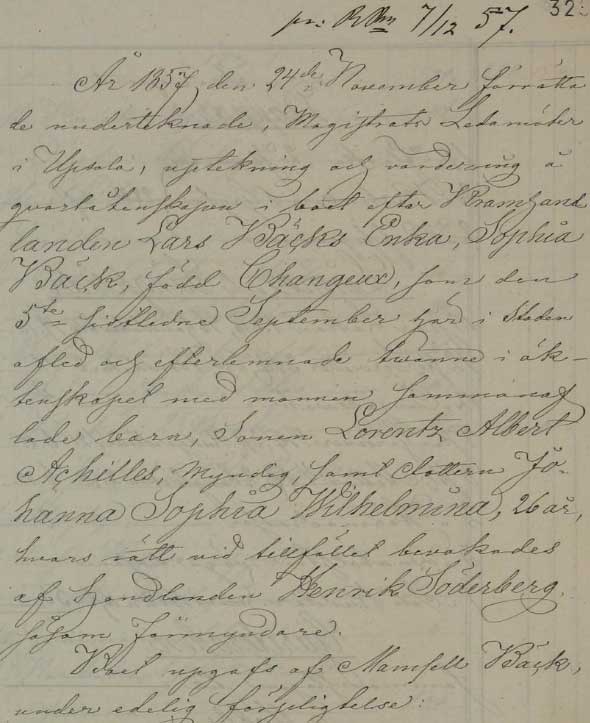 pr: RRn 7/12 57.
32.
År 1857, den 24de November förrätta
de undertecknade, Magistrats Ledamöter
i Upsala, upteckning och värdering å
qvarlåtenskapen i boet efter Kramhand
landen Lars Bäcks Enka, Sophia
Bäck, född Changeux, som den
5te sistledne September här i Staden
afled och efterlemnade twänne i äk-
tenskapet med mannen sammanaf
lade barn, Sonen Lorentz Albert
Achilles, myndig, samt dottern Jo-
hanna Sophia Wilhelmina, 26 år,
hvars rätt vid tillfället bevakades
af Handlanden Henrik Söderberg,
såsom Förmyndare.
Boet upgafs af Mamsell Bäck,
under edelig förpligtelse: